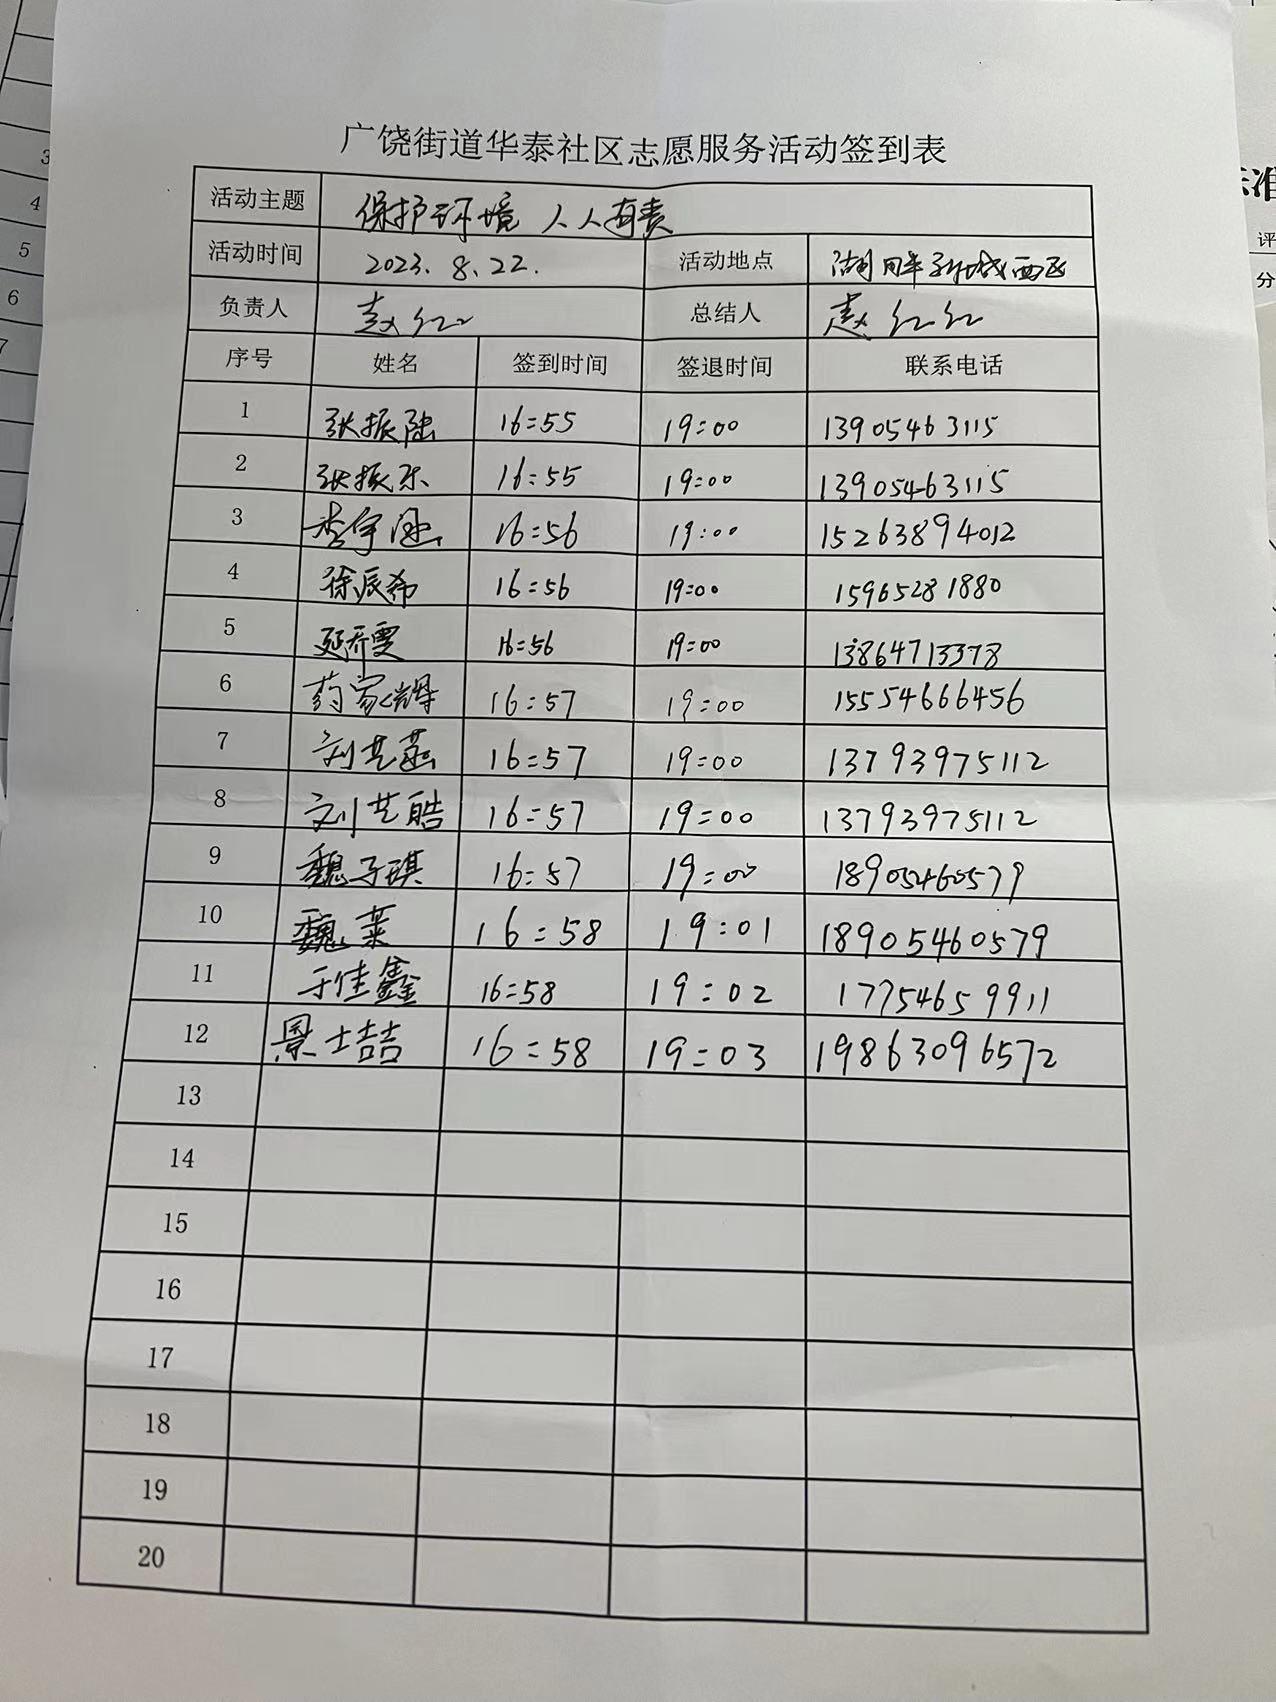 广饶街道华泰社区志愿服务活动签到表
活动主题 保护环境 人人有责
活动时间 2023.8.22. 活动地点 湖畔新城西区
负责人 赵红红 总结人 赵红红
序号 姓名 签到时间 签退时间 联系电话
1 张振陆 16:55 19:00 13905463115
2 张振东 16:55 19:00 13905463115
3 李宇涵 16:56 19:00 15263894012
4 徐辰希 16:56 19:00 15965281880
5 延乔雯 16:56 19:00 13864713378
6 药家辉 16:57 19:00 15554666456
7 刘艺菡 16:57 19:00 13793975112
8 刘艺皓 16:57 19:00 13793975112
9 魏子琪 16:57 19:00 18905460579
10 魏莱 16:58 19:01 18905460579
11 于佳鑫 16:58 19:02 17754659911
12 景士喆 16:58 19:03 19863096572
13
14
15
16
17
18
19
20
3
4
5
6
7
准
评
分